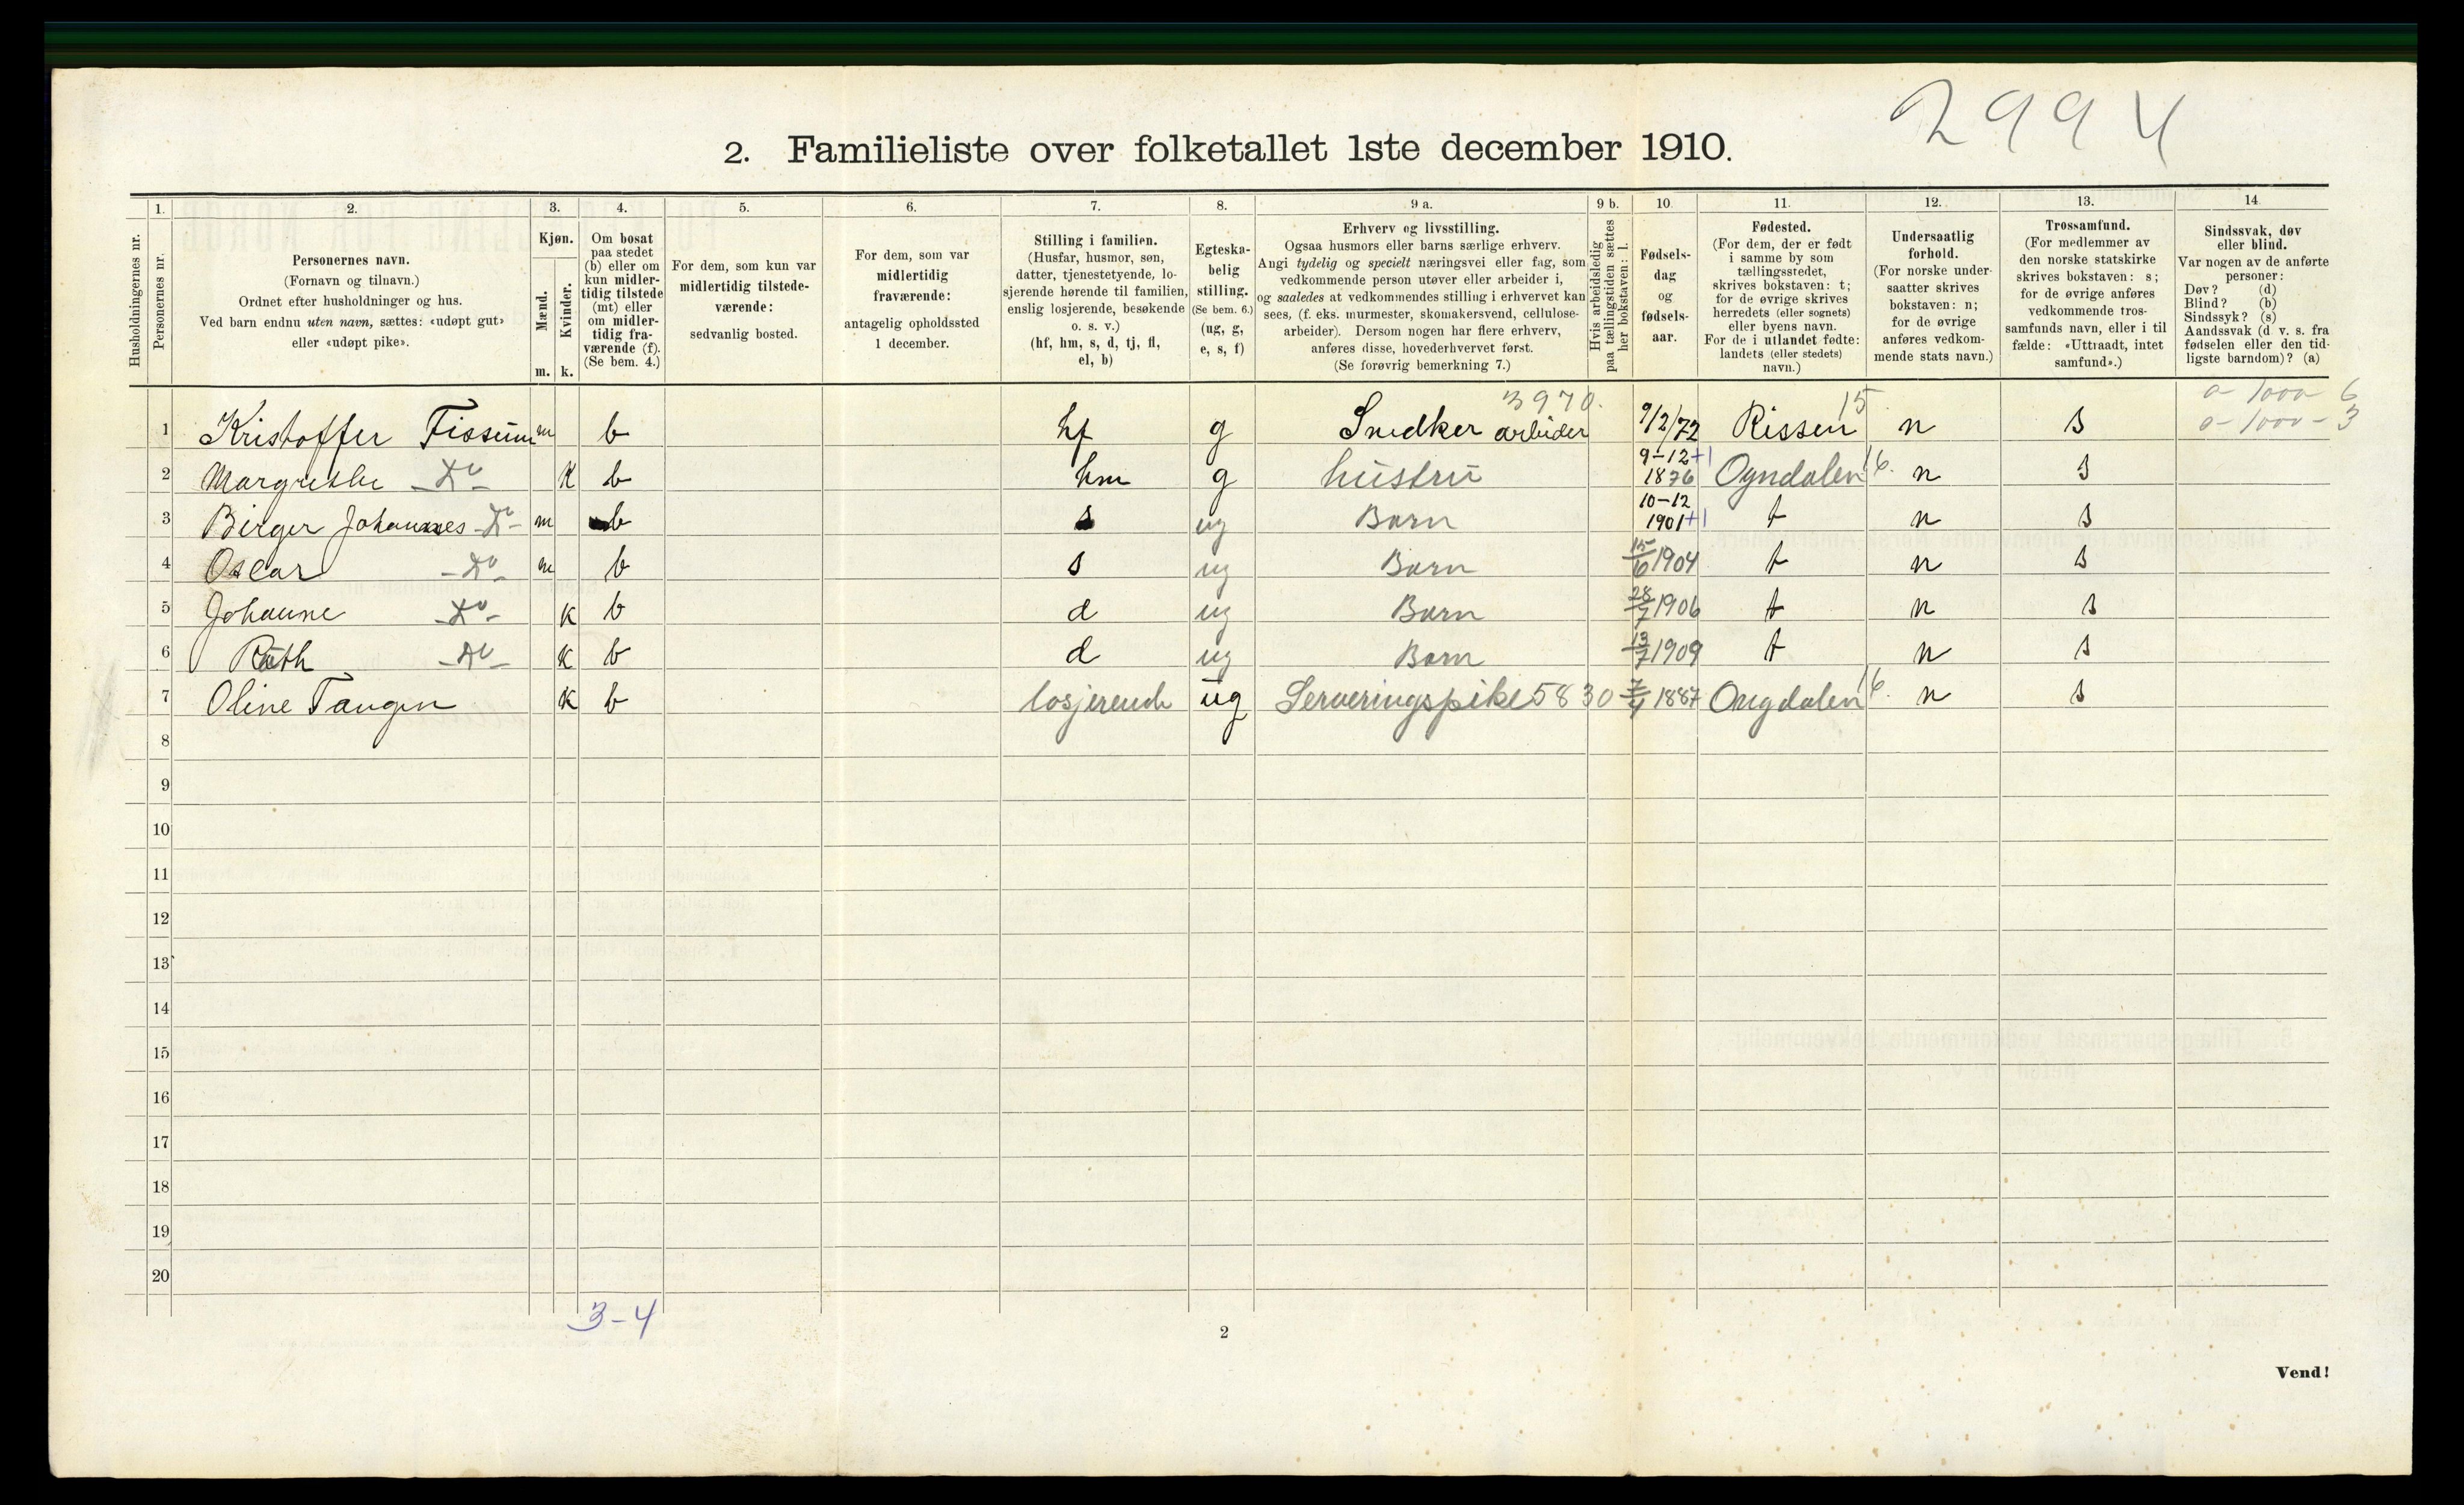 2994
2. Familieliste over folketallet 1ste december 1910.
Husholdningernes nr.
1.
Personernes nr.
2.
Personernes navn.
(Fornavn og tilnavn.)
Ordnet efter husholdninger og hus.
Ved barn endnu uten navn, sættes: «udøpt gut»
eller «udøpt pike».
3.
Kjøn.
Mænd.
Kvinder.
m. k.
4.
Om bosat
paa stedet
(b) eller om
kun midler-
tidig tilstede
(mt) eller
om midler-
tidig fra-
værende (f).
(Se bem. 4.)
5.
For dem, som kun var
midlertidig tilstede-
værende:
sedvanlig bosted.
6.
For dem, som var
midlertidig
fraværende:
antagelig opholdssted
1 december.
7.
Stilling i familien.
(Husfar, husmor, søn,
datter, tjenestetyende, lo-
sjerende hørende til familien,
enslig losjerende, besøkende
o. s. v.)
(hf, hm, s, d, tj, fl,
el, b)
8.
Egteska-
belig
stilling.
(Se bem. 6.)
(ug, g,
e, s, f)
9 a.
Erhverv og livsstilling.
Ogsaa husmors eller barns særlige erhverv.
Angi tydelig og specielt næringsvei eller fag, som
vedkommende person utøver eller arbeider i,
og saaledes at vedkommendes stilling i erhvervet kan
sees, (f. eks. murmester, skomakersvend, cellulose-
arbeider). Dersom nogen har flere erhverv,
anføres disse, hovederhvervet først.
(Se forøvrig bemerkning 7.)
9 b.
Hvis arbeidsledig
paa tællingstiden sættes
her bokstaven: l.
10.
Fødsels-
dag
og
fødsels-
aar.
11.
Fødested.
(For dem, der er født
i samme by som
tællingsstedet,
skrives bokstaven: t;
for de øvrige skrives
herredets (eller sognets)
eller byens navn.
For de i utlandet fødte:
landets (eller stedets)
navn.)
12.
Undersaatlig
forhold.
(For norske under-
saatter skrives
bokstaven: n;
for de øvrige
anføres vedkom-
mende stats navn.)
13.
Trossamfund.
(For medlemmer av
den norske statskirke
skrives bokstaven: s;
for de øvrige anføres
vedkommende tros-
samfunds navn, eller i til
fælde: «Uttraadt, intet
samfund».)
14
Sindssvak, døv
eller blind.
Var nogen av de anførte
personer:
Døv? (d)
Blind? (b)
Sindssyk? (s)
Aandssvak (d v. s. fra
fødselen eller den tid-
ligste barndom)? (a)
3970. 15 0-1000 6
1 Kristoffer Fissum m b hf g Snedker arbeider 9/2/72 Rissen n s 0-1000-3
2 Margrethe -Do- K b hm g hustru 9-12+1 1876 Ogndalen 16. n s
3 Birger Johannes -Do- m b s ug Barn 10-12 1901+1 t n s
4 Oscar -Do- m b s ug Barn 15/6 1904 t n s
5 Johanne -Do- K b d ug Barn 28/7 1906 t n s
6 Ruth -Do- K b d ug Barn 13/7 1909 t n s
7 Oline Tangen K b losjerende ug Serveringspike 5830 7/4 1887 Ongdalen 16. n s
8
9
10
11
12
13
14
15
16
17
18
19
20
3-4
2
Vend!